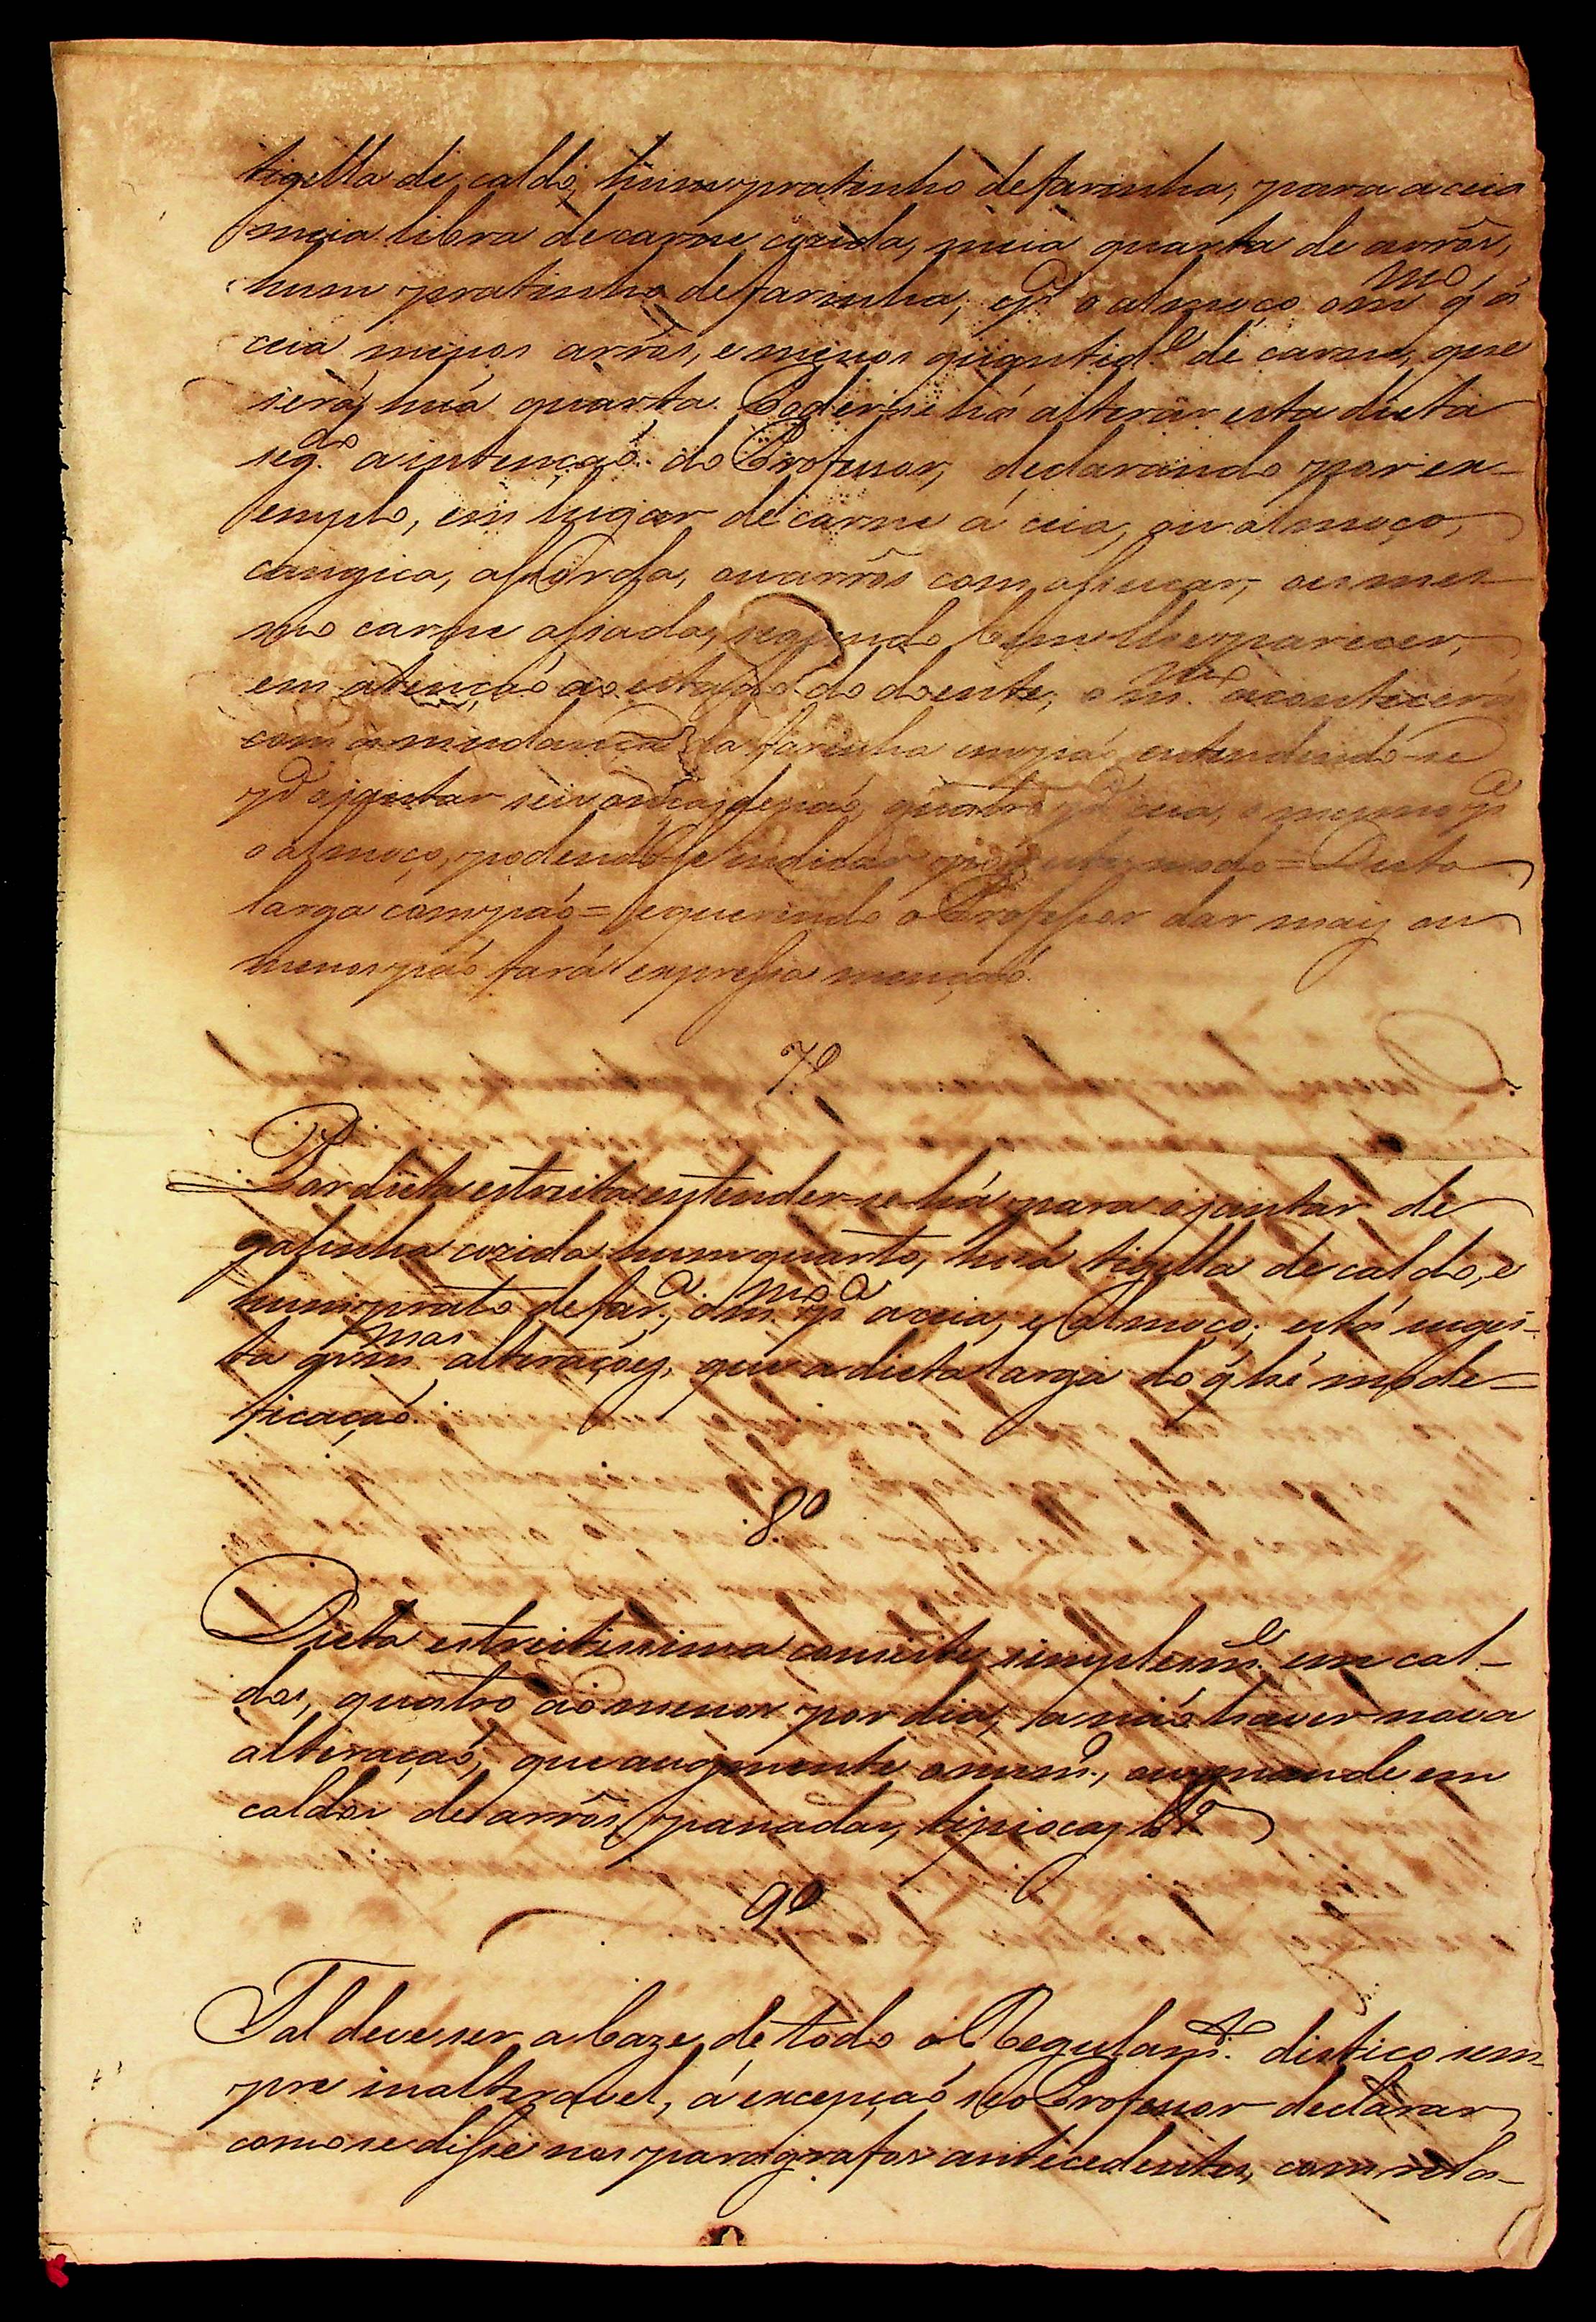 tigella de caldo, hum pratinho de farinha, para a ceia
meia libra de carne cozida, meia quarta de arrôs,
hum pratinho de farinha; e p.ª o almoço o m.mo q' á
ceia menos arrôs, e menos quantid.e de carne, que
será huã quarta. Poder-se há alterar esta dieta
seg.do a intençaõ do Professor, declarando por ex-
emplo, em lugar de carne á ceia, ou almoço,
cangica, assorda, ou arrôs com assucar, ou mes-
mo carne assada, segundo bem lhe parecer,
em atençaõ ao estado do doente; o m.mo acontecerá
com a mudança da farinha em paõ, entendendo-se
p.ª o jantar seis onças de paõ, quatro p.ª a ceia, o mesmo p.ª
o almoço, podendo-se indicar por este modo = Dieta
larga com paõ = e querendo o Professor dar mais ou
menos paõ fará expressa mençaõ.
7.º
Por dieta estreita entender-se-há para o jantar de
galinha cozida hum quarto, huã tigella de caldo, e
hum prato de far.ª; o m.mo p.ª a ceia, e almoço; está sugei-
ta ás m.mas alterações, que a dieta larga do q' hé mode-
ficaçaõ.
8.º
Dieta estreitissima consiste simplesm.e em cal-
dos, quatro ao menos por dia, a naõ haver nova
alteraçaõ, que augmente o num.º, ou mande em
caldos de arrôs, panadas, tipiocas &.ª
9.º
Tal deve ser a baze de todo o Regulam.to dietico sem-
pre inalteravel, á excepçaõ se o Professor declarar
como se disse nos paragrafos antecedentes, com rela-